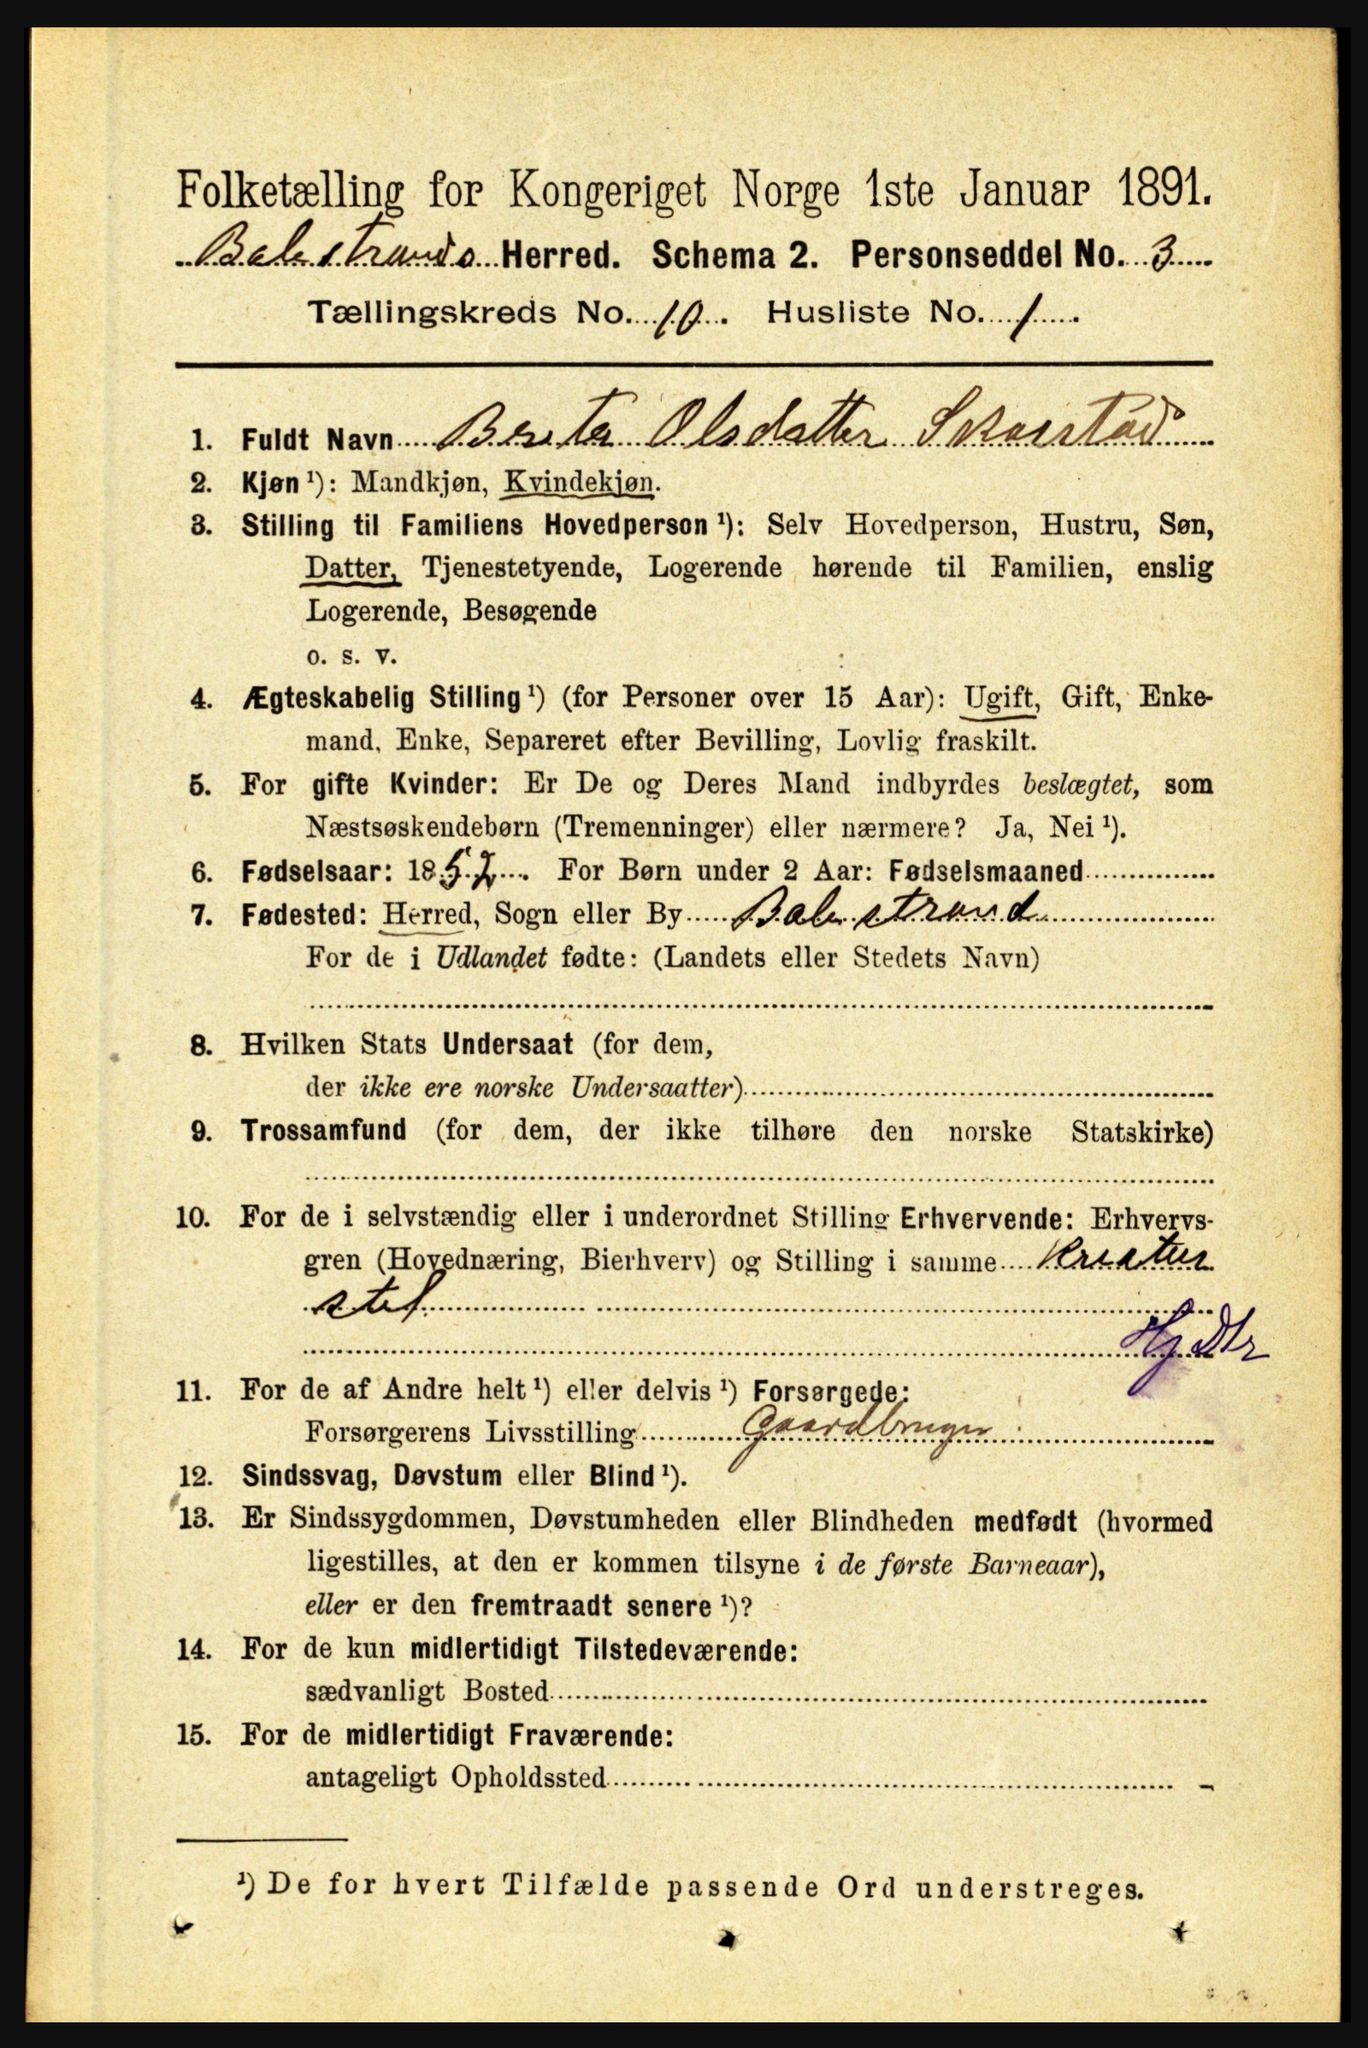 Folketælling for Kongeriget Norge 1ste Januar 1891.
Balestrands Herred. Schema 2. Personseddel No. 3
Tællingskreds No. 10. Husliste No. 1.
1. Fuldt Navn Olsdatter
2. Kjøn ¹): Mandkjøn, Kvindekjøn.
3. Stilling til Familiens Hovedperson ¹): Selv Hovedperson, Hustru, Søn,
Datter, Tjenestetyende, Logerende hørende til Familien, enslig
Logerende, Besøgende
o. s. v.
4. Ægteskabelig Stilling ¹) (for Personer over 15 Aar): Ugift, Gift, Enke-
mand, Enke, Separeret efter Bevilling, Lovlig fraskilt.
5. For gifte Kvinder: Er De og Deres Mand indbyrdes beslægtet, som
Næstsøskendebørn (Tremenninger) eller nærmere? Ja, Nei ¹).
6. Fødselsaar: 1852. For Børn under 2 Aar: Fødselsmaaned
7. Fødested: Herred, Sogn eller By Balestrand
For de i Udlandet fødte: (Landets eller Stedets Navn)
8. Hvilken Stats Undersaat (for dem,
der ikke ere norske Undersaatter)
9. Trossamfund (for dem, der ikke tilhøre den norske Statskirke)
10. For de i selvstændig eller i underordnet Stilling Erhvervende: Erhvervs-
gren (Hovednæring, Bierhverv) og Stilling i samme Kreatur
stel
Hj Dtr
11. For de af Andre helt ¹) eller delvis ¹) Forsørgede:
Forsørgerens Livsstilling Gaardbruger
12. Sindssvag, Døvstum eller Blind ¹).
13. Er Sindssygdommen, Døvstumheden eller Blindheden medfødt (hvormed
ligestilles, at den er kommen tilsyne i de første Barneaar),
eller er den fremtraadt senere ¹)?
14. For de kun midlertidigt Tilstedeværende:
sædvanligt Bosted
15. For de midlertidigt Fraværende:
antageligt Opholdssted
¹) De for hvert Tilfælde passende Ord understreges.